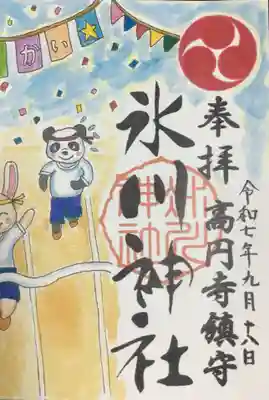 かい★
奉拝
高円寺鎮守
氷川神社
令和七年九月十八日